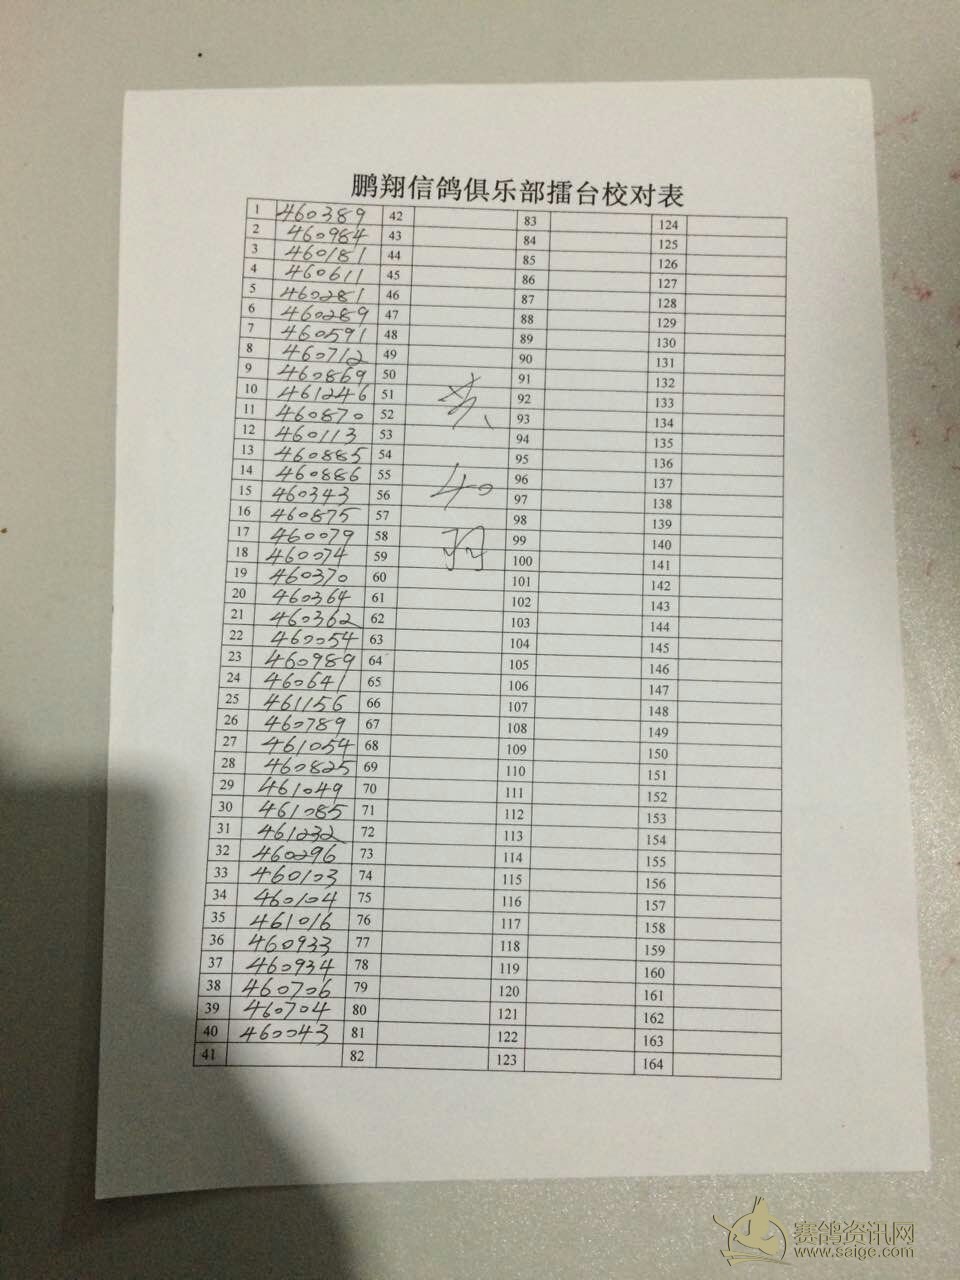 鹏翔信鸽俱乐部擂台校对表
1 460389 42 83 124
2 460984 43 84 125
3 460181 44 85 126
4 460611 45 86 127
5 460281 46 87 128
6 460289 47 88 129
7 460591 48 89 130
8 460712 49 90 131
9 460869 50 91 132
10 461246 51 共 92 133
11 460870 52 93 134
12 460113 53 94 135
13 460885 54 95 136
14 460886 55 40 96 137
15 460343 56 97 138
16 460875 57 98 139
17 460079 58 羽 99 140
18 460074 59 100 141
19 460370 60 101 142
20 460364 61 102 143
21 460362 62 103 144
22 460054 63 104 145
23 460989 64 105 146
24 460641 65 106 147
25 461156 66 107 148
26 460789 67 108 149
27 461054 68 109 150
28 460825 69 110 151
29 461049 70 111 152
30 461085 71 112 153
31 461232 72 113 154
32 460296 73 114 155
33 460103 74 115 156
34 460104 75 116 157
35 461016 76 117 158
36 460933 77 118 159
37 460934 78 119 160
38 460706 79 120 161
39 460704 80 121 162
40 460043 81 122 163
41 82 123 164
赛鸽资讯网
www.saige.com